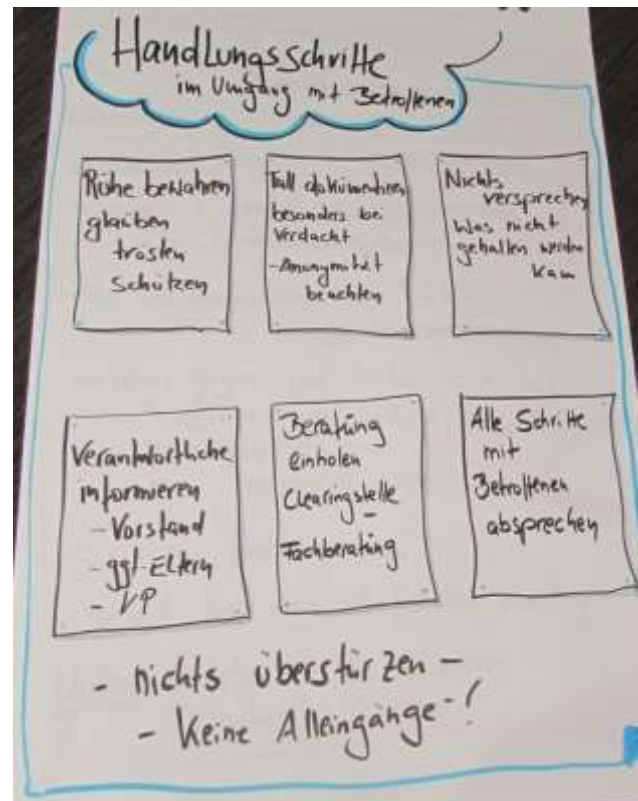 Handlungsschritte
im Umgang mit Betroffenen
Ruhe bewahren
glauben
trösten
schützen
Fall dokumentieren
besonders bei
Verdacht
- Anonymität
beachten
Nichts
versprechen
Was nicht
gehalten werden
kann
Verantwortliche
informieren
- Vorstand
- ggf. Eltern
- VP
Beratung
einholen
Clearingstelle
Fachberatung
Alle Schritte
mit
Betroffenen
absprechen
- nichts überstürzen -
- Keine Alleingänge - !